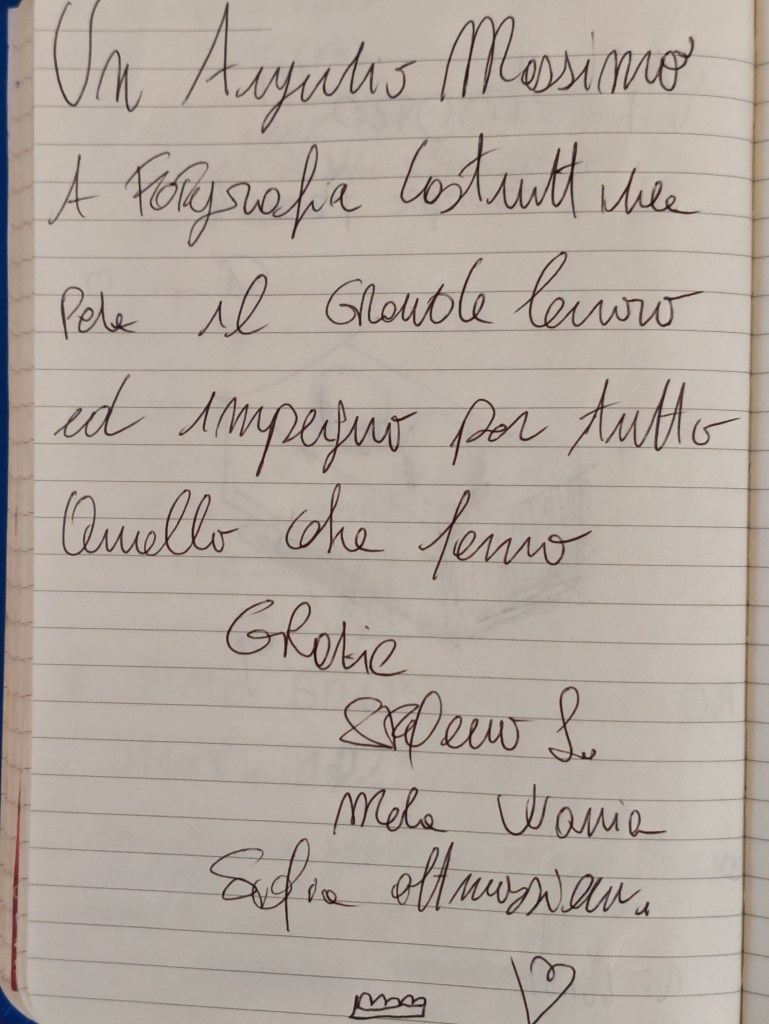 Un Augurio Massimo
A Fotografia Costruttiva
Per il Grande lavoro
ed impegno per tutto
Quello che fanno
Grazie
Stefano S.